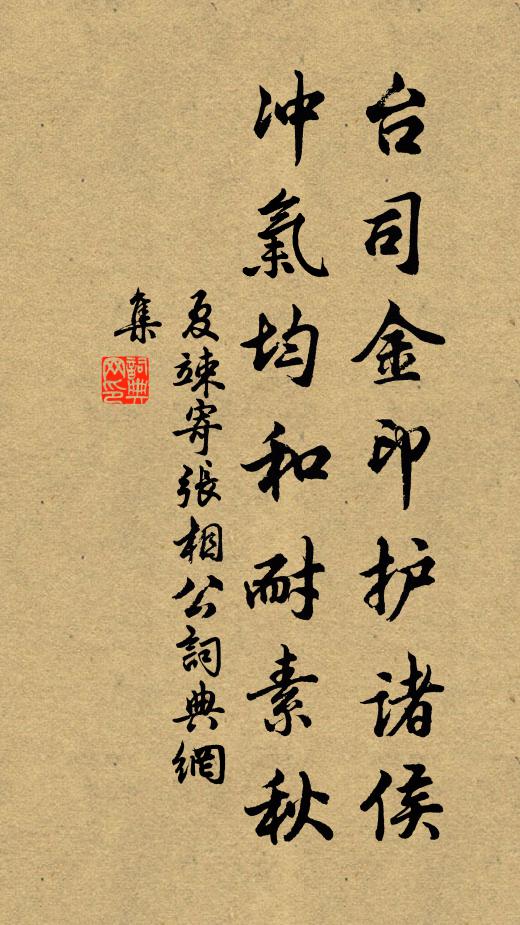 台司金印护诸侯
冲氣均和耐素秋
夏竦寄張相公詞典網
集
詞典
网印